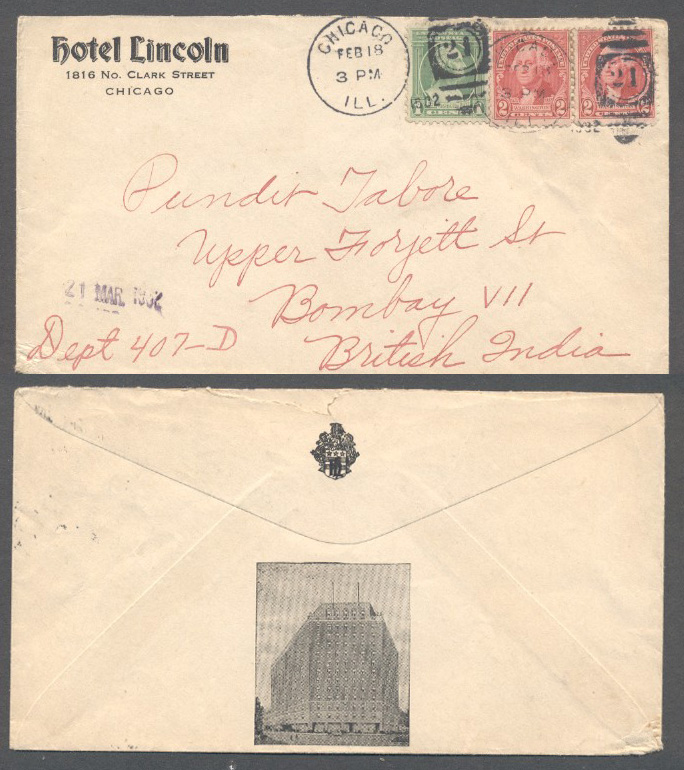 Hotel Lincoln
1816 No. Clark Street
CHICAGO
CHICAGO
FEB 18
3 PM
ILL.
21
21
2 WASHINGTON 2
CENTS
2
3 PM
ILL
Pundit Tabore
Upper Forjett St
Bombay VII
British India
21 MAR 1932
Dept 407-D